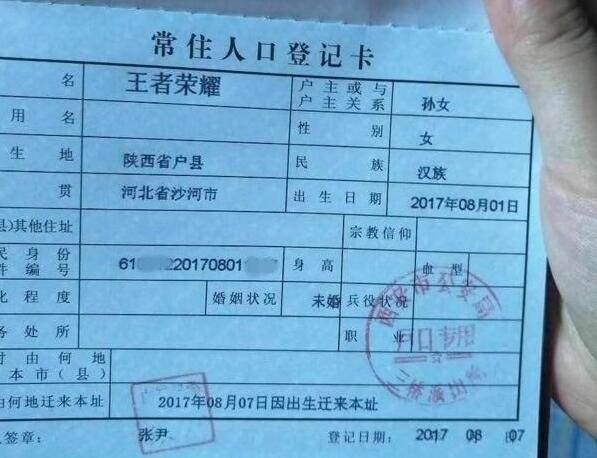 常住人口登记卡
名 王者荣耀 户主或与户主关系 孙女
用名 性别 女
生地 陕西省户县 民族 汉族
贯 河北省沙河市 出生日期 2017年08月01日
县)其他住址 宗教信仰
民身份件编号 61 220170801 身高 血型
化程度 婚姻状况 未婚 兵役状况
务处所 职业
由何地本市(县)
由何地迁来本址 2017年08月07日因出生迁来本址
人签章: 张尹 登记日期: 2017 08 07
西安市公安局
户口专用
三桥派出所